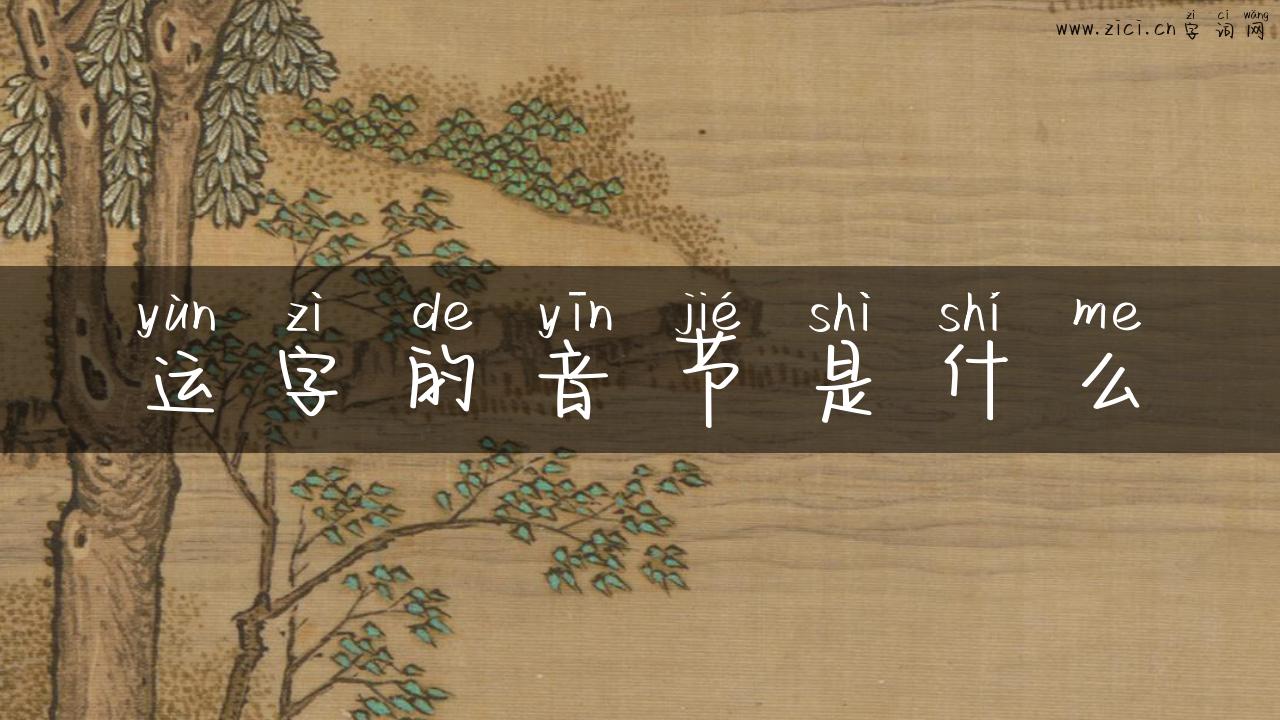 zì cí wǎng
www.zici.cn 字词网
yùn zì de yīn jié shì shí me
运字的音节是什么